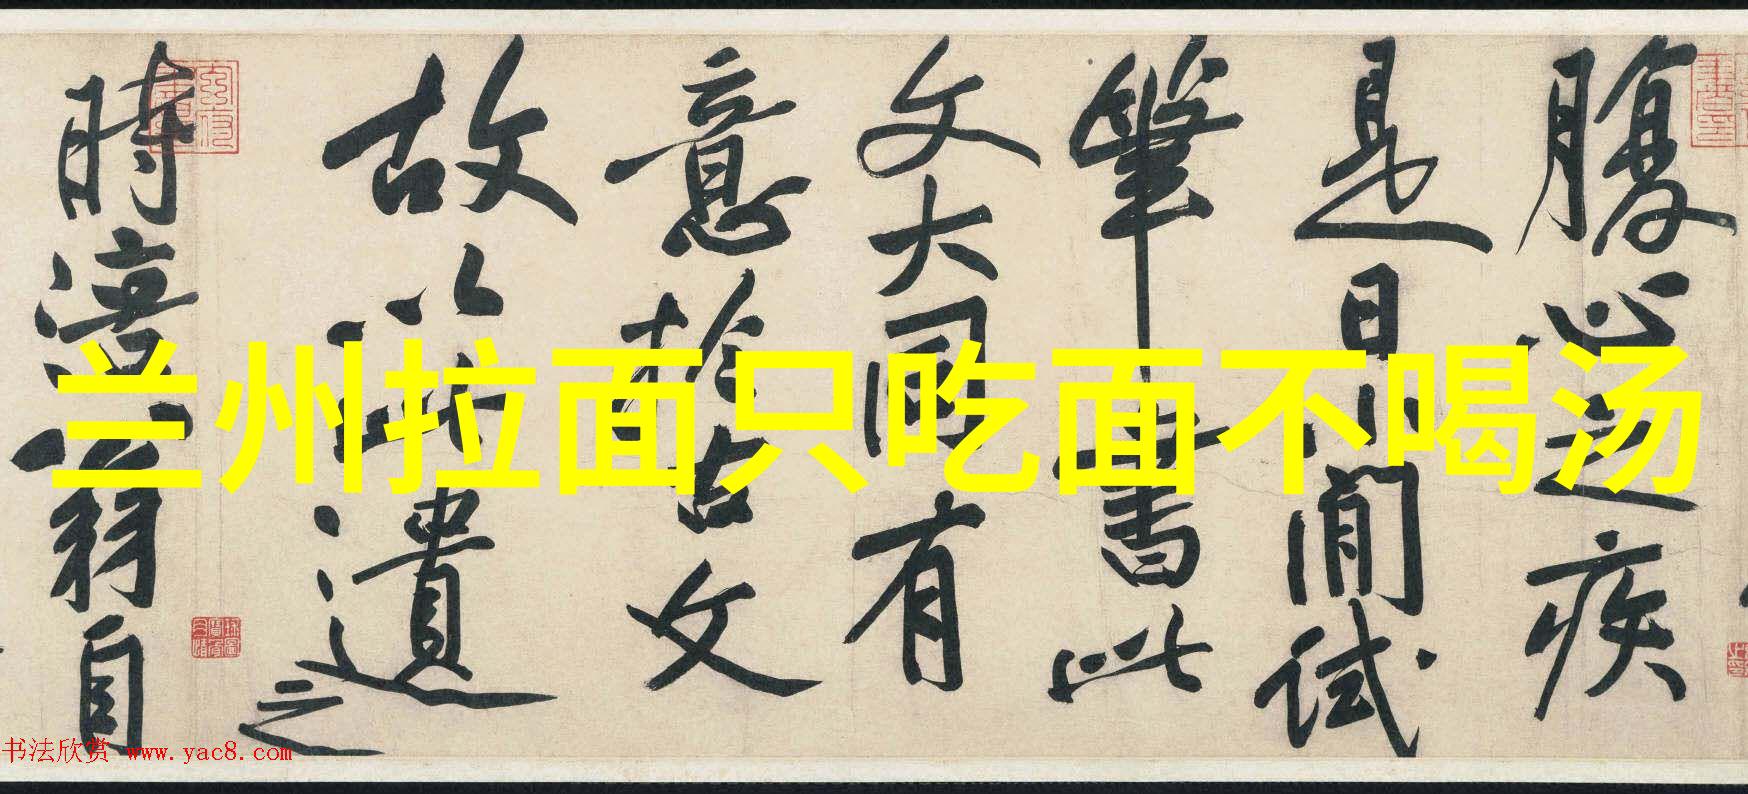 兰州拉面只吃面不喝汤
腹心之疾
是日閒試
筆書此
文大同有
意於古文
故以此遺之
時涪翁自
书法欣赏 www.yac8.com